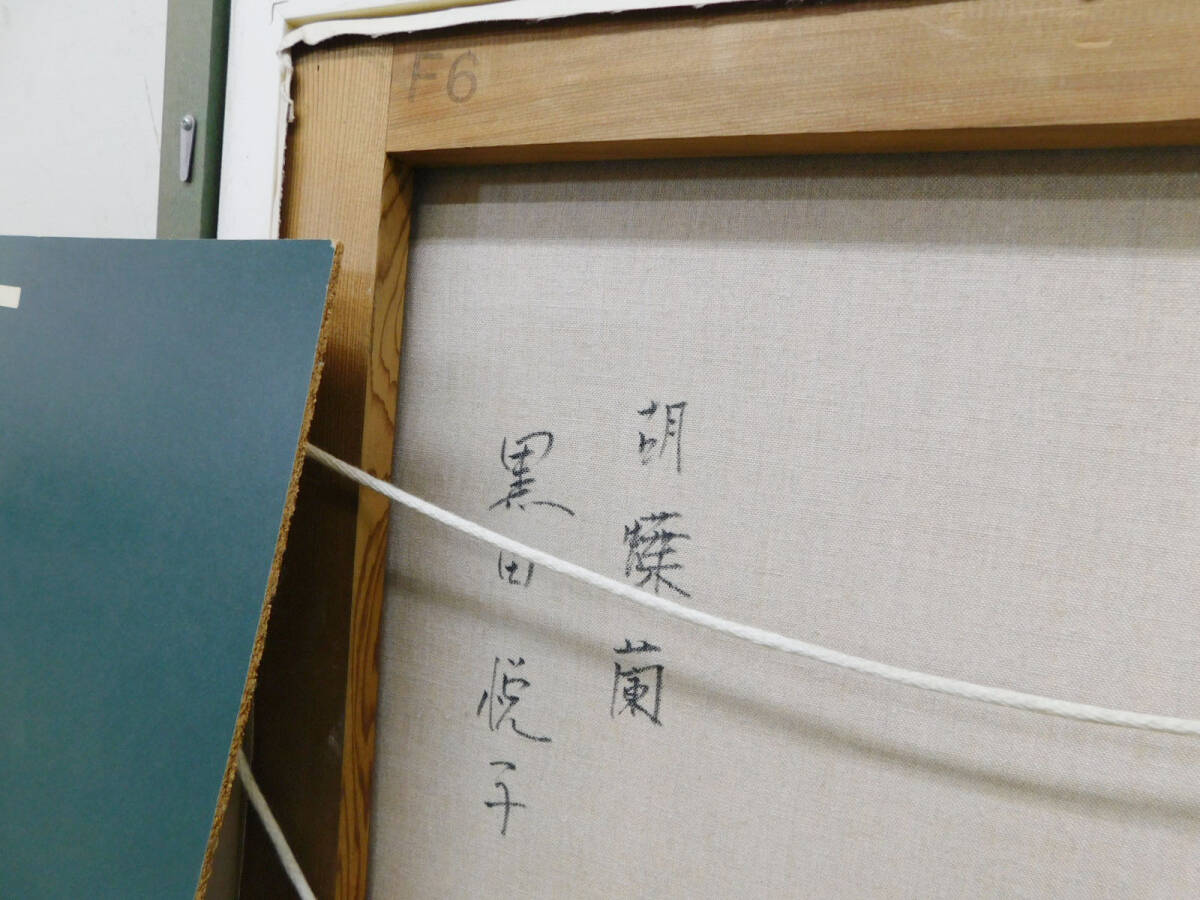 F6
胡蝶蘭
黒田悦子